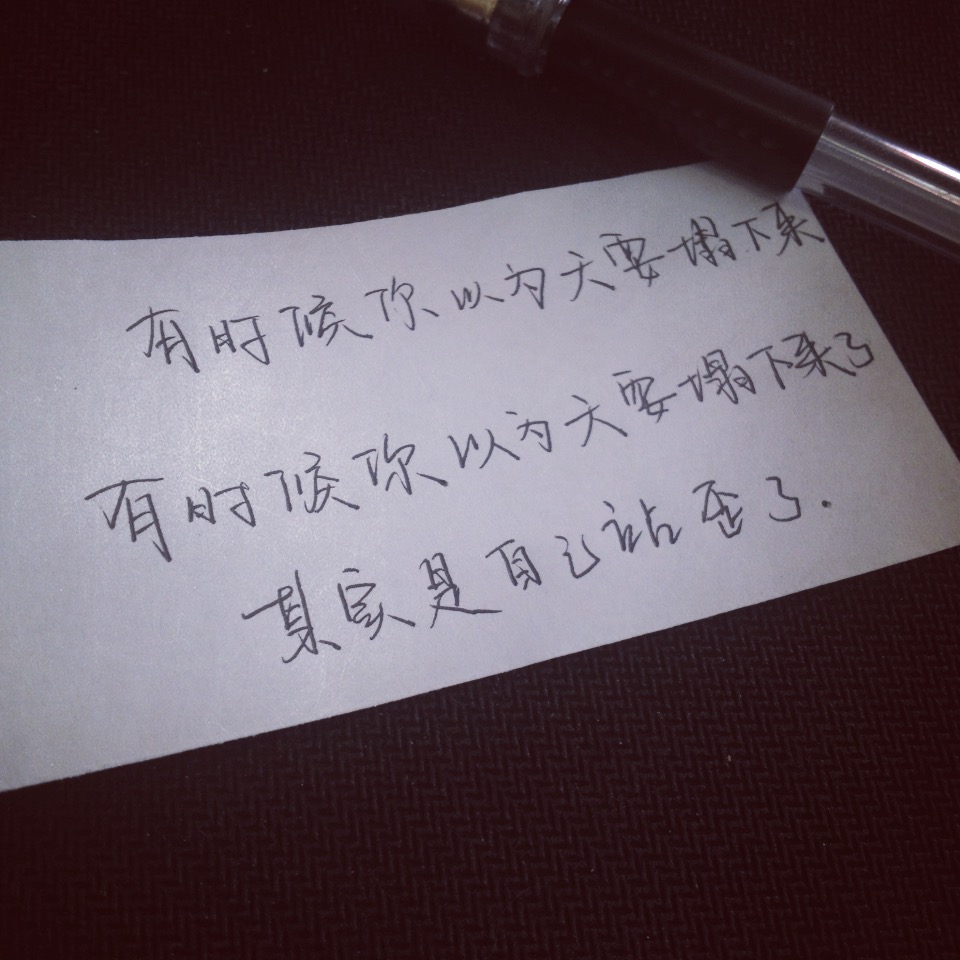 有时候你以为天要塌下来
有时候你以为天要塌下来了
其实是自己站歪了.